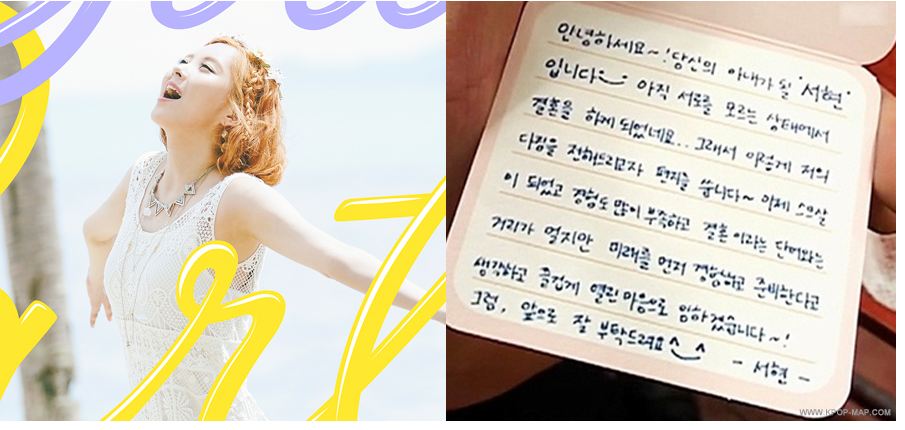 안녕하세요~! 당신의 아내가 될 '서현'
입니다~ 아직 서로를 모르는 상태에서
결혼을 하게 되었네요.. 그래서 이렇게 저의
다짐을 전해드리고자 편지를 씁니다~ 이제 스무살
이 되었고 경험도 많이 부족하고 결혼이라는 단어와는
거리가 멀지만 미래를 먼저 경험하고 준비한다고
생각하고 즐겁게 열린마음으로 임하겠습니다~!
그럼, 앞으로 잘 부탁드려요^_^ - 서현 -
WWW.KPOP-MAP.COM